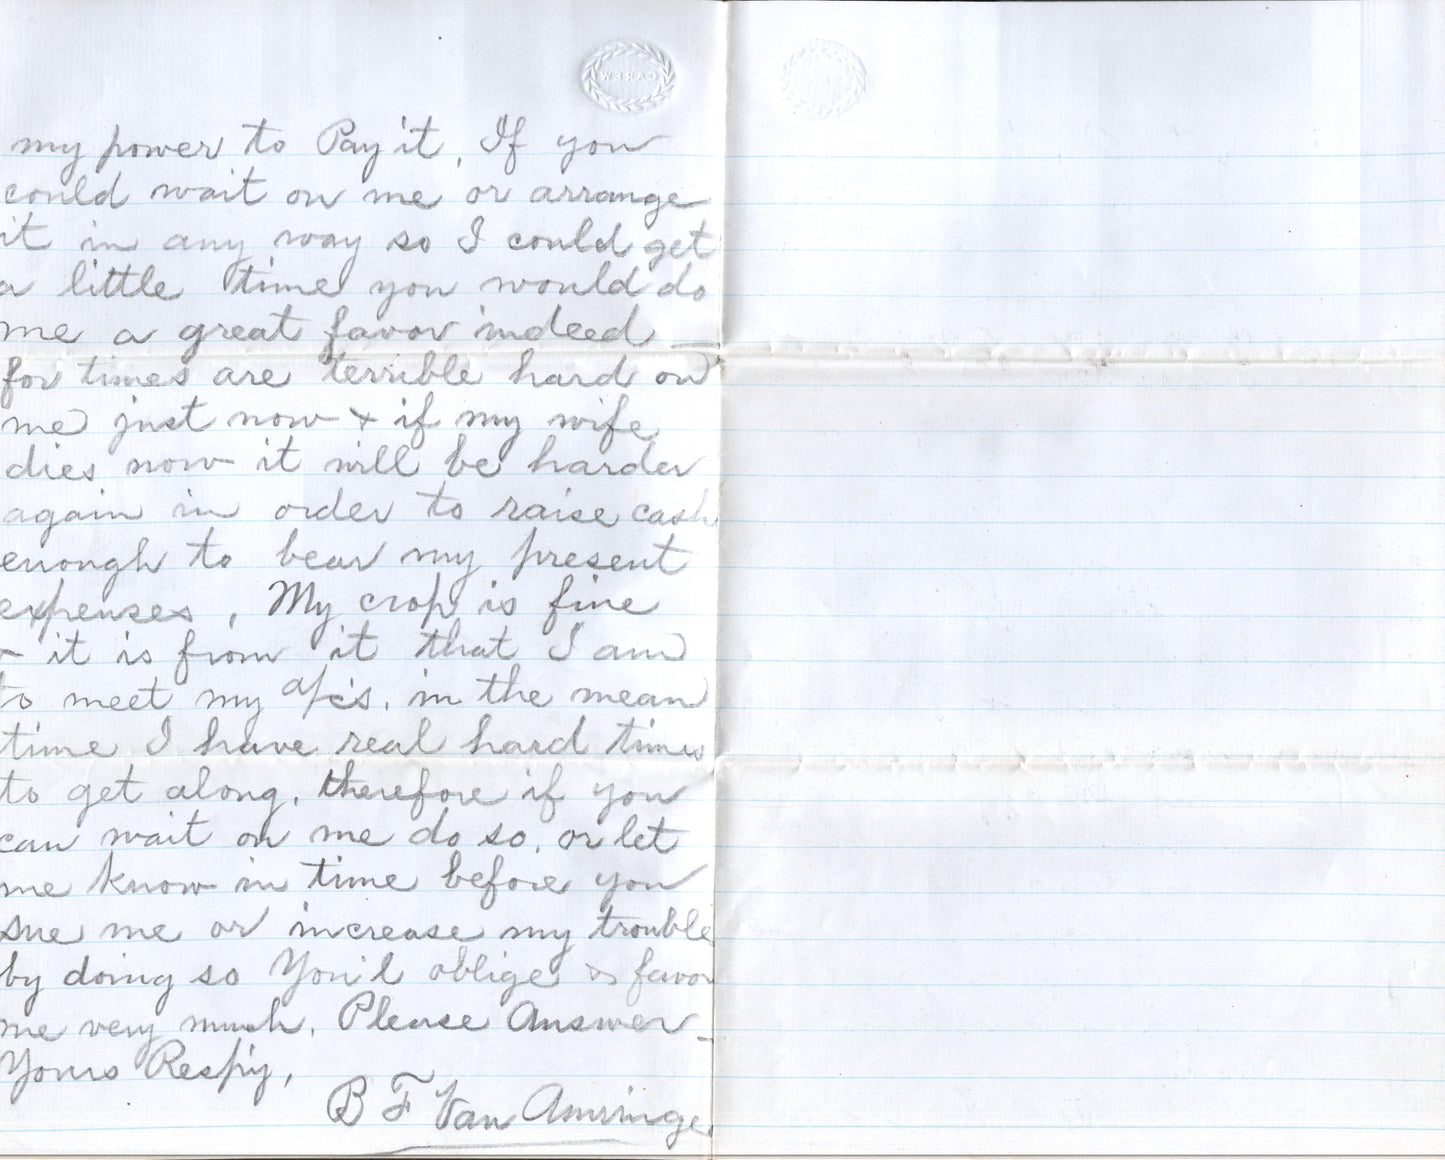 my power to Pay it, If you
could wait on me or arrange
it in any way so I could get
a little time you would do
me a great favor indeed —
for times are terrible hard on
me just now & if my wife
dies now it will be harder
again in order to raise cash
enough to bear my present
expenses, My crop is fine
& it is from it that I am
to meet my a/c's, in the mean
time I have real hard times
to get along, therefore if you
can wait on me do so, or let
me know in time before you
sue me or increase my trouble
by doing so You'l oblige & favor
me very much, Please Answer
Yours Respy,
B F Van Amringe